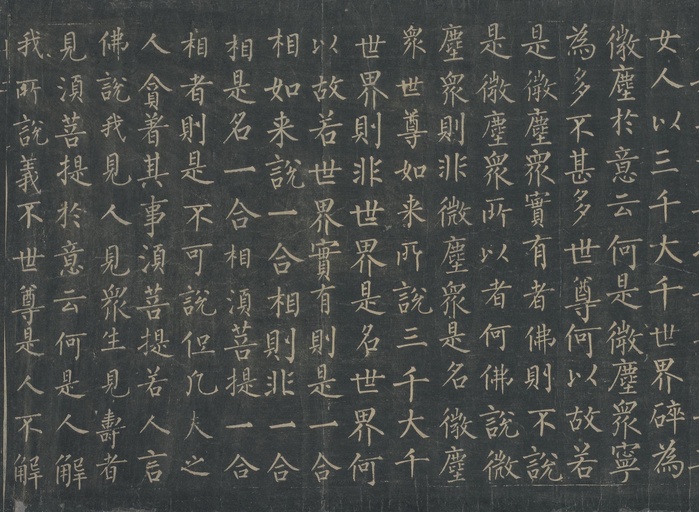 女人以三千大千世界碎為
微塵於意云何是微塵衆寧
為多不甚多世尊何以故若
是微塵衆實有者佛則不說
是微塵衆所以者何佛說微
塵衆則非微塵衆是名微塵
衆世尊如来所說三千大千
世界則非世界是名世界何
以故若世界實有則是一合
相如来說一合相則非一合
相是名一合相須菩提一合
相者則是不可說但凡夫之
人貪著其事須菩提若人言
佛說我見人見衆生見壽者
見須菩提於意云何是人解
我所說義不世尊是人不解